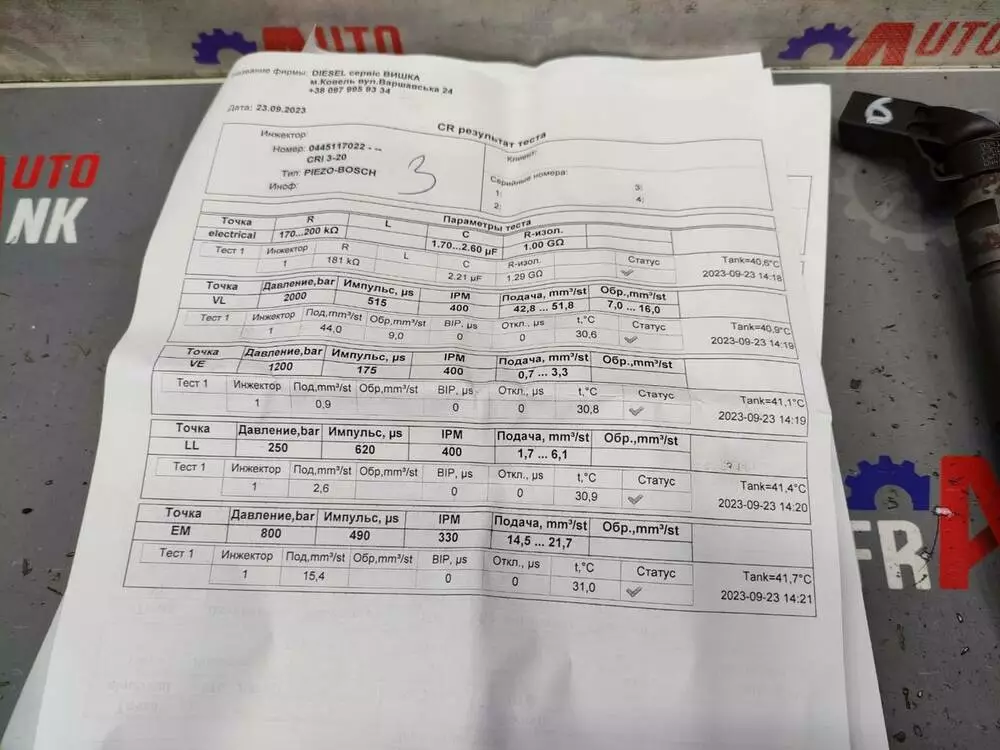 AUTO
AUTO
название фирмы: DIESEL сервіс ВИШКА
м.Ковель вул.Варшавська 24
+38 097 995 93 34
Дата: 23.09.2023
CR результат теста
Инжектор:
Номер: 0445117022 - --
CRI 3-20
Тип: PIEZO-BOSCH
Иноф:
3
Клиент:
Серийные номера:
1: 3:
2: 4:
6
AUTO
NK
Параметры теста
Точка R L C R-изол.
electrical 170...200 kΩ 1.70...2.60 µF 1.00 GΩ
Тест 1 Инжектор R L C R-изол. Статус Tank=40,6°C
1 181 kΩ 2.21 µF 1.29 GΩ 2023-09-23 14:18
Точка Давление,bar Импульс, µs IPM Подача, mm³/st Обр.,mm³/st
VL 2000 515 400 42,8 ... 51,8 7,0 ... 16,0
Тест 1 Инжектор Под,mm³/st Обр,mm³/st BIP, µs Откл., µs t,°C Статус Tank=40,9°C
1 44,0 9,0 0 0 30,6 2023-09-23 14:19
Точка Давление,bar Импульс, µs IPM Подача, mm³/st Обр.,mm³/st
VE 1200 175 400 0,7 ... 3,3
Тест 1 Инжектор Под,mm³/st Обр,mm³/st BIP, µs Откл., µs t,°C Статус Tank=41,1°C
1 0,9 0 0 30,8 2023-09-23 14:19
Точка Давление,bar Импульс, µs IPM Подача, mm³/st Обр.,mm³/st
LL 250 620 400 1,7 ... 6,1
Тест 1 Инжектор Под,mm³/st Обр,mm³/st BIP, µs Откл., µs t,°C Статус Tank=41,4°C
1 2,6 0 0 30,9 2023-09-23 14:20
Точка Давление,bar Импульс, µs IPM Подача, mm³/st Обр.,mm³/st
EM 800 490 330 14,5 ... 21,7
Тест 1 Инжектор Под,mm³/st Обр,mm³/st BIP, µs Откл., µs t,°C Статус Tank=41,7°C
1 15,4 0 0 31,0 2023-09-23 14:21